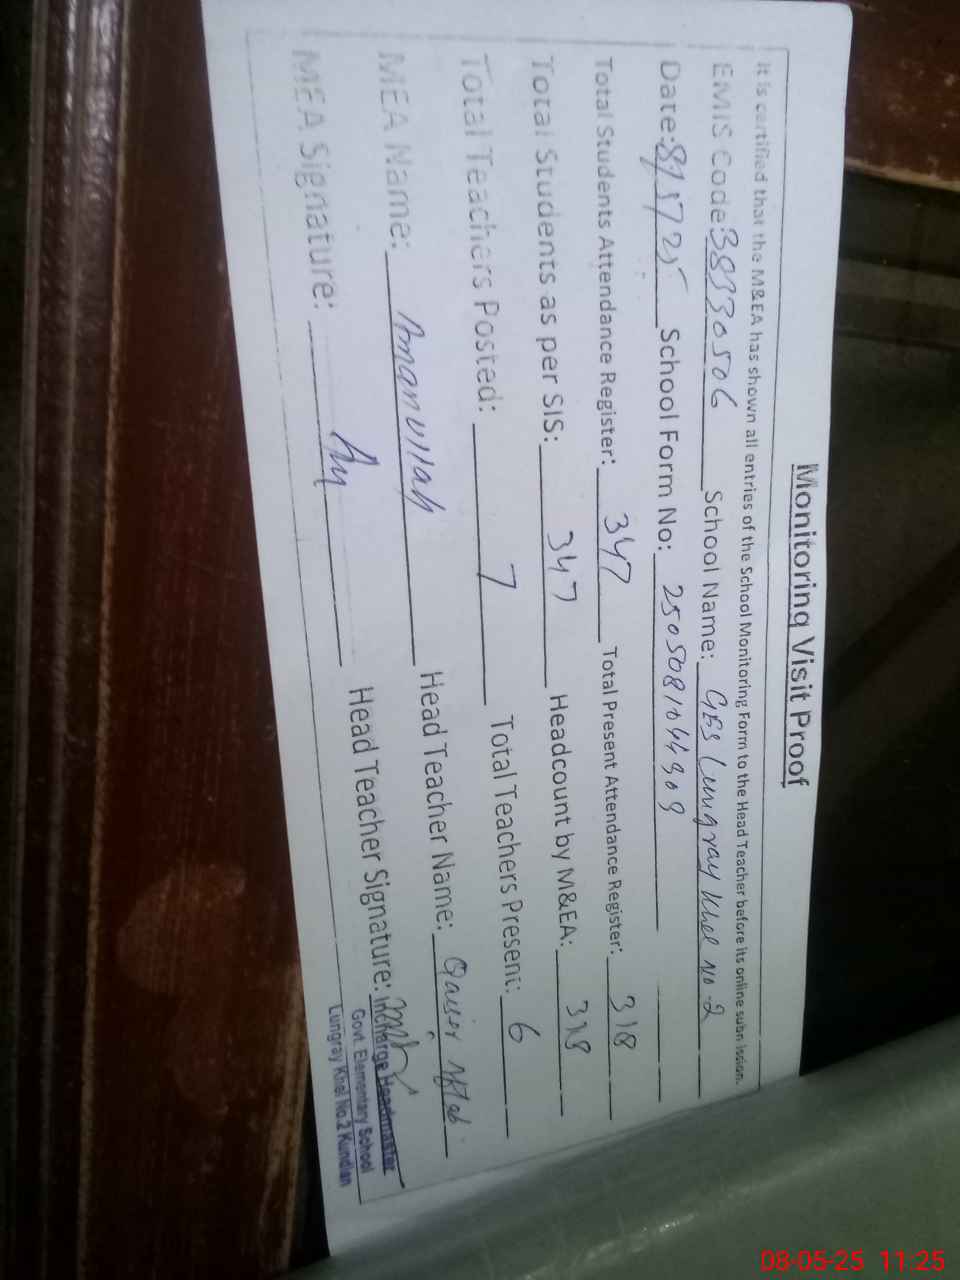 Monitoring Visit Proof
It is certified that the M&EA has shown all entries of the School Monitoring Form to the Head Teacher before its online submission.
EMIS Code: 38330506 School Name: GES Lungray Khel No-2
Date: 8/5/25 School Form No: 2505081044309
Total Students Attendance Register: 347 Total Present Attendance Register: 318
Total Students as per SIS: 347 Headcount by M&EA: 318
Total Teachers Posted: 7 Total Teachers Present: 6
MEA Name: Amanullah Head Teacher Name: Qaiser Aftab
MEA Signature: Head Teacher Signature:
Incharge Headmaster
Govt. Elementary School
Lungray Khel No.2 Kundian
08-05-25 11:25